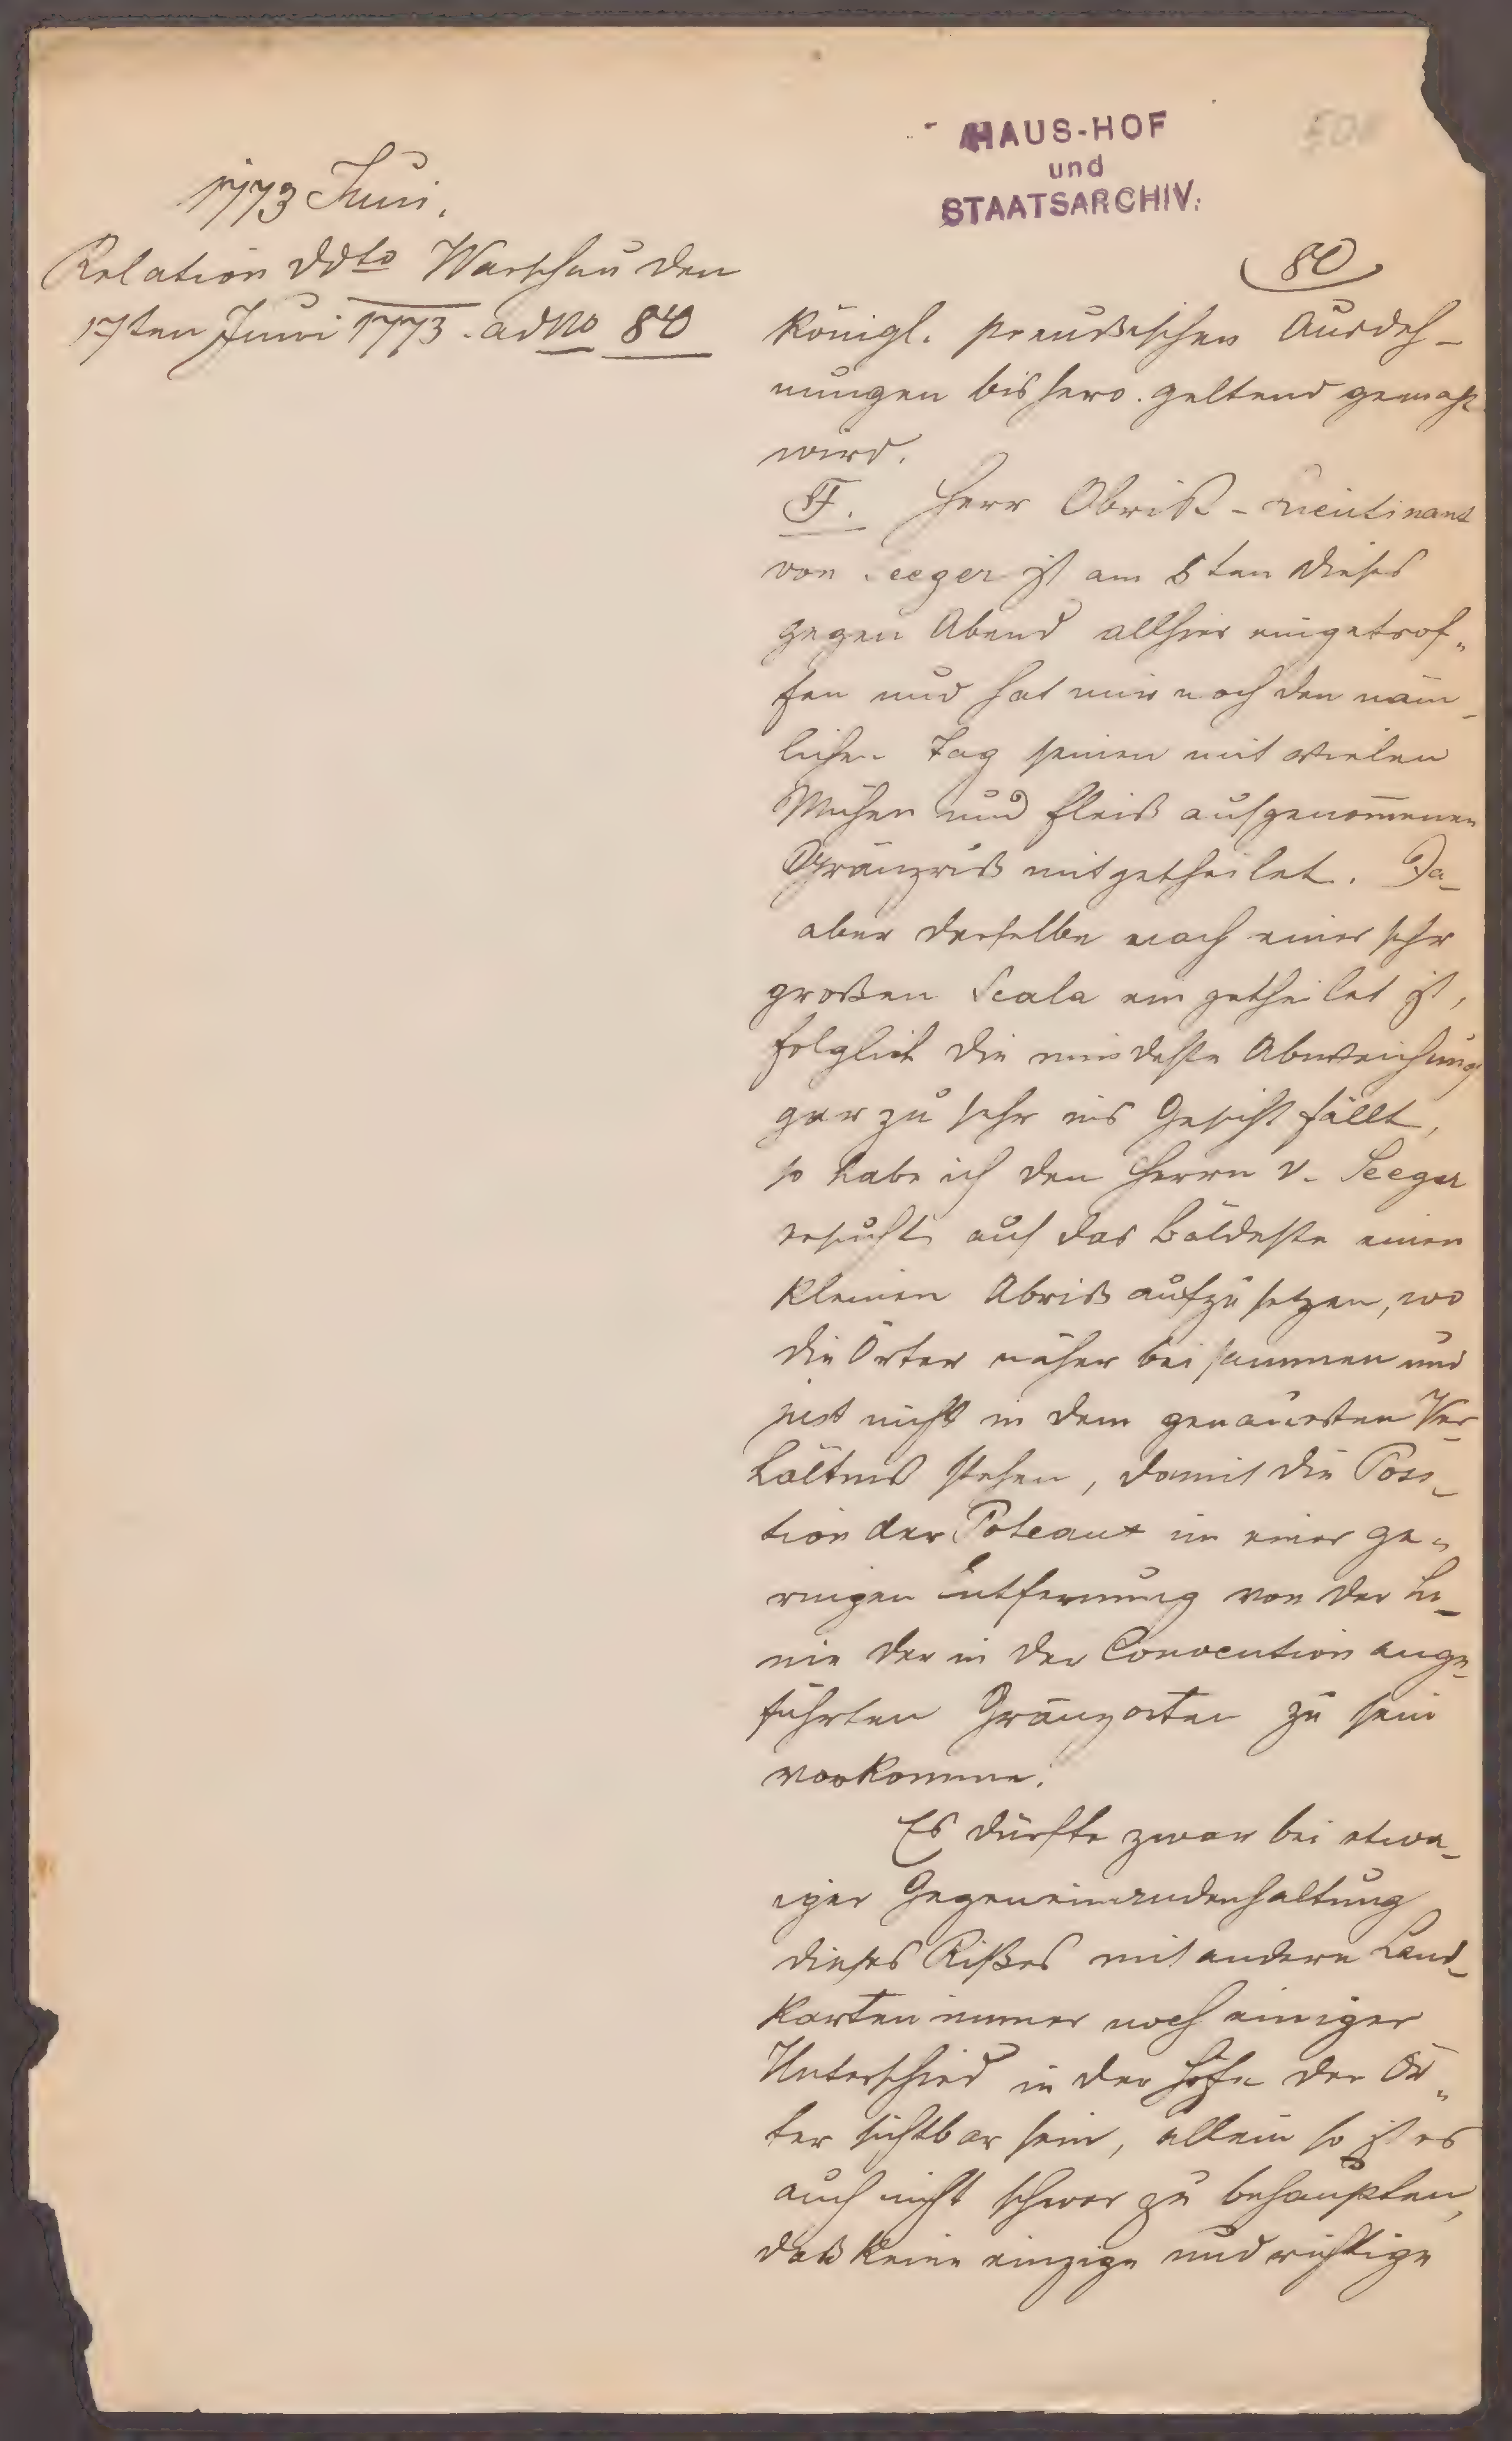 HAUS-HOF
und
STAATSARCHIV.
1773 Juni.
Relation ddto Warschau den
17ten Juni 1773. ad No 80
80
königl. preußischen Ausdeh-
nungen bishero geltend gemacht
wird.
F. Herr Obrist-Lieutinant
von Seeger ist am 8ten dieses
gegen Abend allhier eingetrof-
fen und hat mir noch den näm-
lichen Tag seinen mit vielen
Mühen und Fleiß aufgenommenen
Gränzriß mitgetheilet. Da
aber derselbe nach einer sehr
großen Scala eingetheilet ist,
folglich die mindeste Abweichung
gar zu sehr ins Gesicht fällt,
so habe ich den Herrn v. Seeger
ersucht auf das bäldeste einen
kleinen Abriß aufzusetzen, wo
die Örter näher beisammen und
just nicht in dem genauesten Ver-
hältniß stehen, damit die Posi-
tion der Poteaux in einer ge-
ringen Entfernung von der Li-
nie der in der Convention ange-
führten Gränzorten zu sein
vorkomme.
Es dürfte zwar bei etwa-
iger Gegeneinanderhaltung
dieses Rißes mit andern Land-
karten immer noch einiger
Unterschied in der Höhe der Ör-
ter sichtbar sein, allein so ist es
auch nicht schwer zu behaupten,
daß keine einzige und richtige